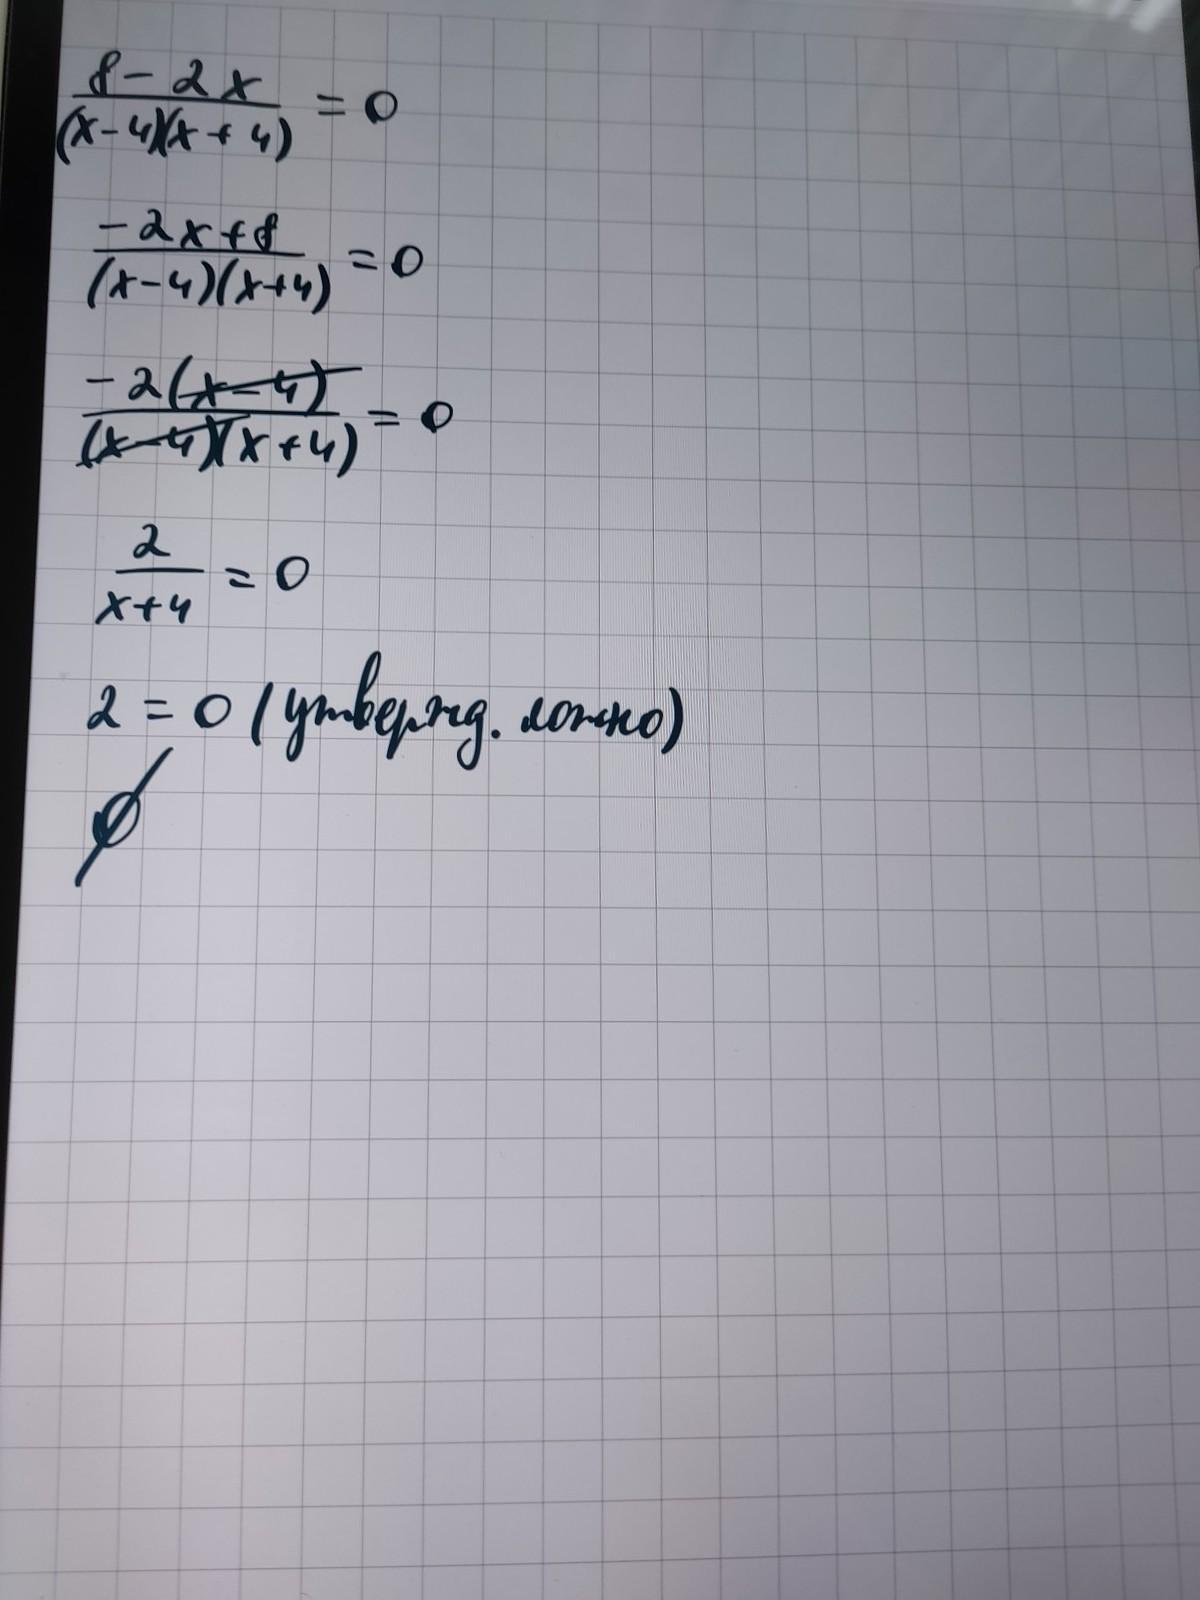 8 - 2x / (x-4)(x+4) = 0
-2x+8 / (x-4)(x+4) = 0
-2(x-4) / (x-4)(x+4) = 0
2 / x+4 = 0
2 = 0 (утвержд. ложно)
∅